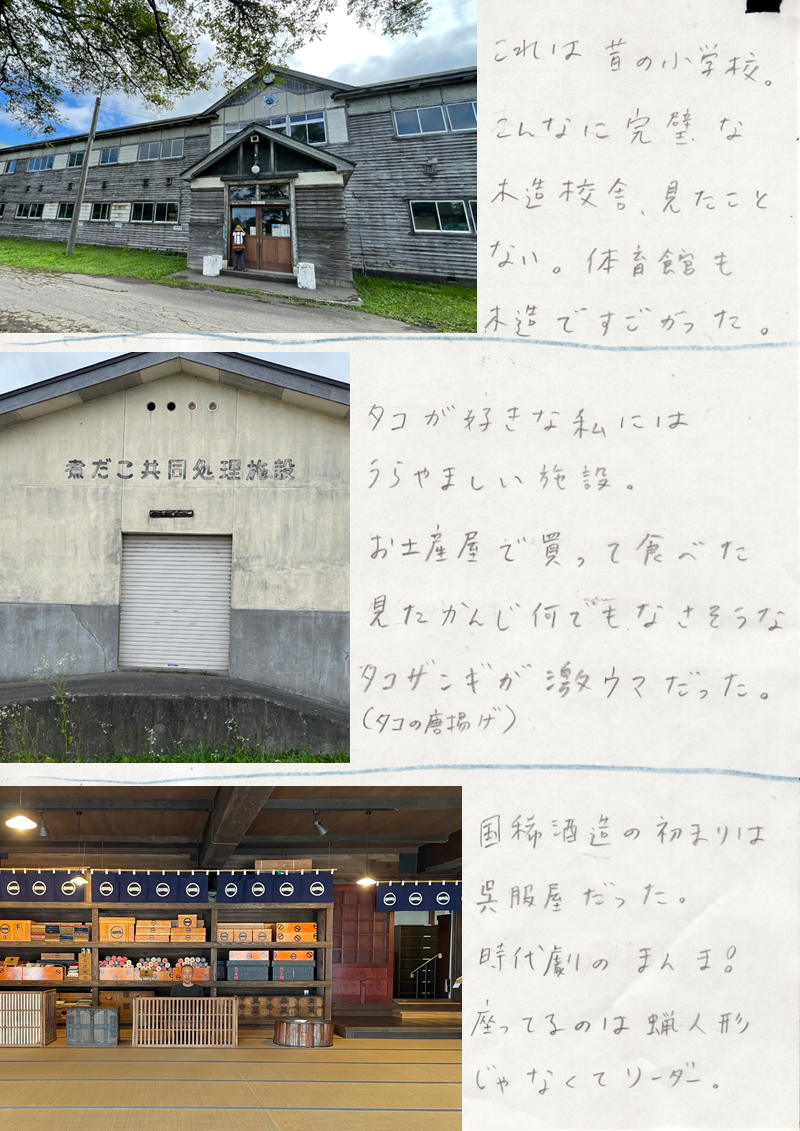 これは昔の小学校。
こんなに完璧な
木造校舎、見たこと
ない。体育館も
木造ですごかった。
煮だこ共同処理施設
タコが好きな私には
うらやましい施設。
お土産屋で買って食べた
見たかんじ何でもなさそうな
タコザンギが激ウマだった。
(タコの唐揚げ)
国稀酒造の初まりは
呉服屋だった。
時代劇のまんま!
座ってるのは蝋人形
じゃなくてリーダー。